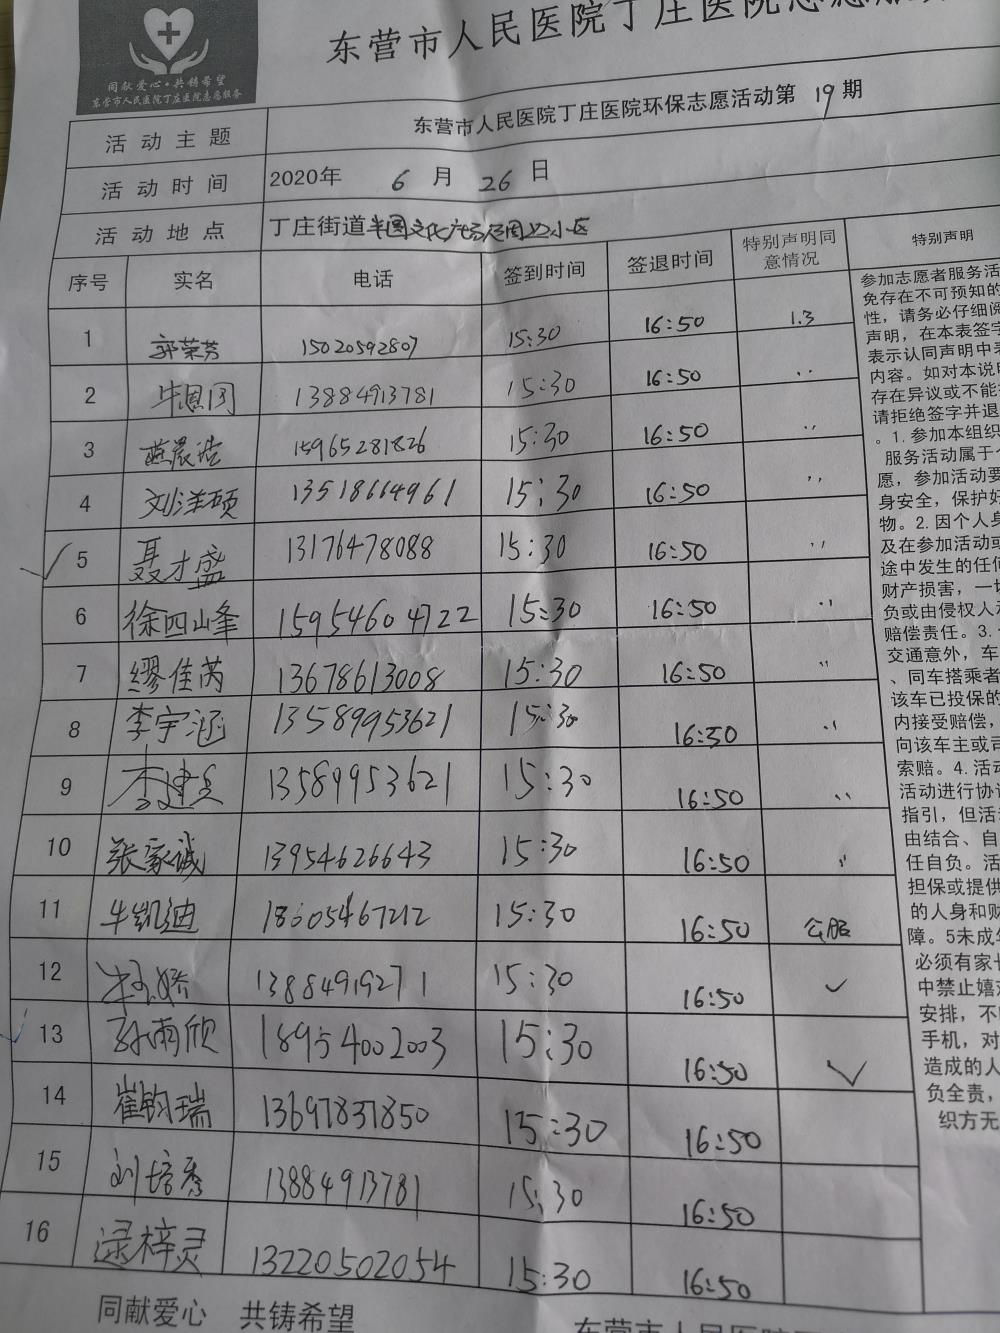 同献爱心·共铸希望
东营市人民医院丁庄医院志愿服务
东营市人民医院丁庄医院志愿服务
活动主题 东营市人民医院丁庄医院环保志愿活动第 19 期
活动时间 2020年 6 月 26 日
活动地点 丁庄街道 文化广场及周边小区
序号 实名 电话 签到时间 签退时间 特别声明同意情况 特别声明
1 郭荣芳 15020592807 15:30 16:50 1.3
2 牛恩同 13884913781 15:30 16:50 ,,
3 燕晨浩 15965281826 15:30 16:50 ,,
4 刘洋硕 13518664961 15:30 16:50 ,,
5 聂才盛 13176478088 15:30 16:50 ,,
6 徐四山峰 15954604722 15:30 16:50 ,,
7 缪佳芮 13678613008 15:30 16:50 ,,
8 李宇涵 13589953621 15:30 16:50 ,,
9 李建兵 13589953621 15:30 16:50 ,,
10 张家诚 13954626643 15:30 16:50 ,,
11 牛凯迪 18605467212 15:30 16:50
12 13884919271 15:30 16:50 ✓
13 孙雨欣 18954002003 15:30 16:50 ✓
14 崔钧瑞 13697837850 15:30 16:50
15 刘培秀 13884913781 15:30 16:50
16 逯梓灵 13220502054 15:30 16:50
参加志愿者服务活
免存在不可预知的
性，请务必仔细阅
声明，在本表签字
表示认同声明中表
内容。如对本说明
存在异议或不能
请拒绝签字并退
。1.参加本组织
服务活动属于个
愿，参加活动要
身安全，保护好
物。2.因个人身
及在参加活动或
途中发生的任何
财产损害，一切
负或由侵权人承
赔偿责任。3.
交通意外，车
、同车搭乘者
该车已投保的
内接受赔偿，
向该车主或司
索赔。4.活动
活动进行协调
指引，但活动
由结合、自
任自负。活
担保或提供
的人身和财
障。5未成年
必须有家长
中禁止嬉
安排，不
手机，对
造成的人
负全责，
织方无
同献爱心 共铸希望
东营市人民医院